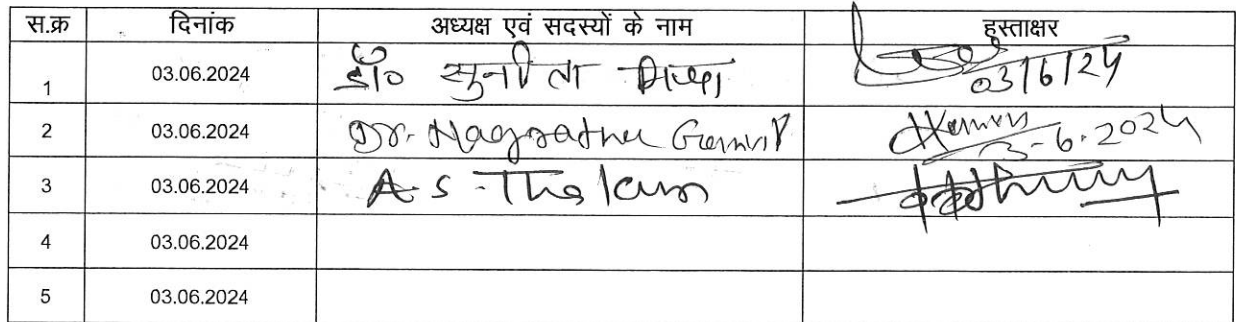 स.क्र दिनांक अध्यक्ष एवं सदस्यों के नाम हस्ताक्षर
1 03.06.2024 डॉ० सुनीता मिश्रा 03/6/24
2 03.06.2024 Dr. Nagratna 3-6-2024
3 03.06.2024 A.S.
4 03.06.2024
5 03.06.2024